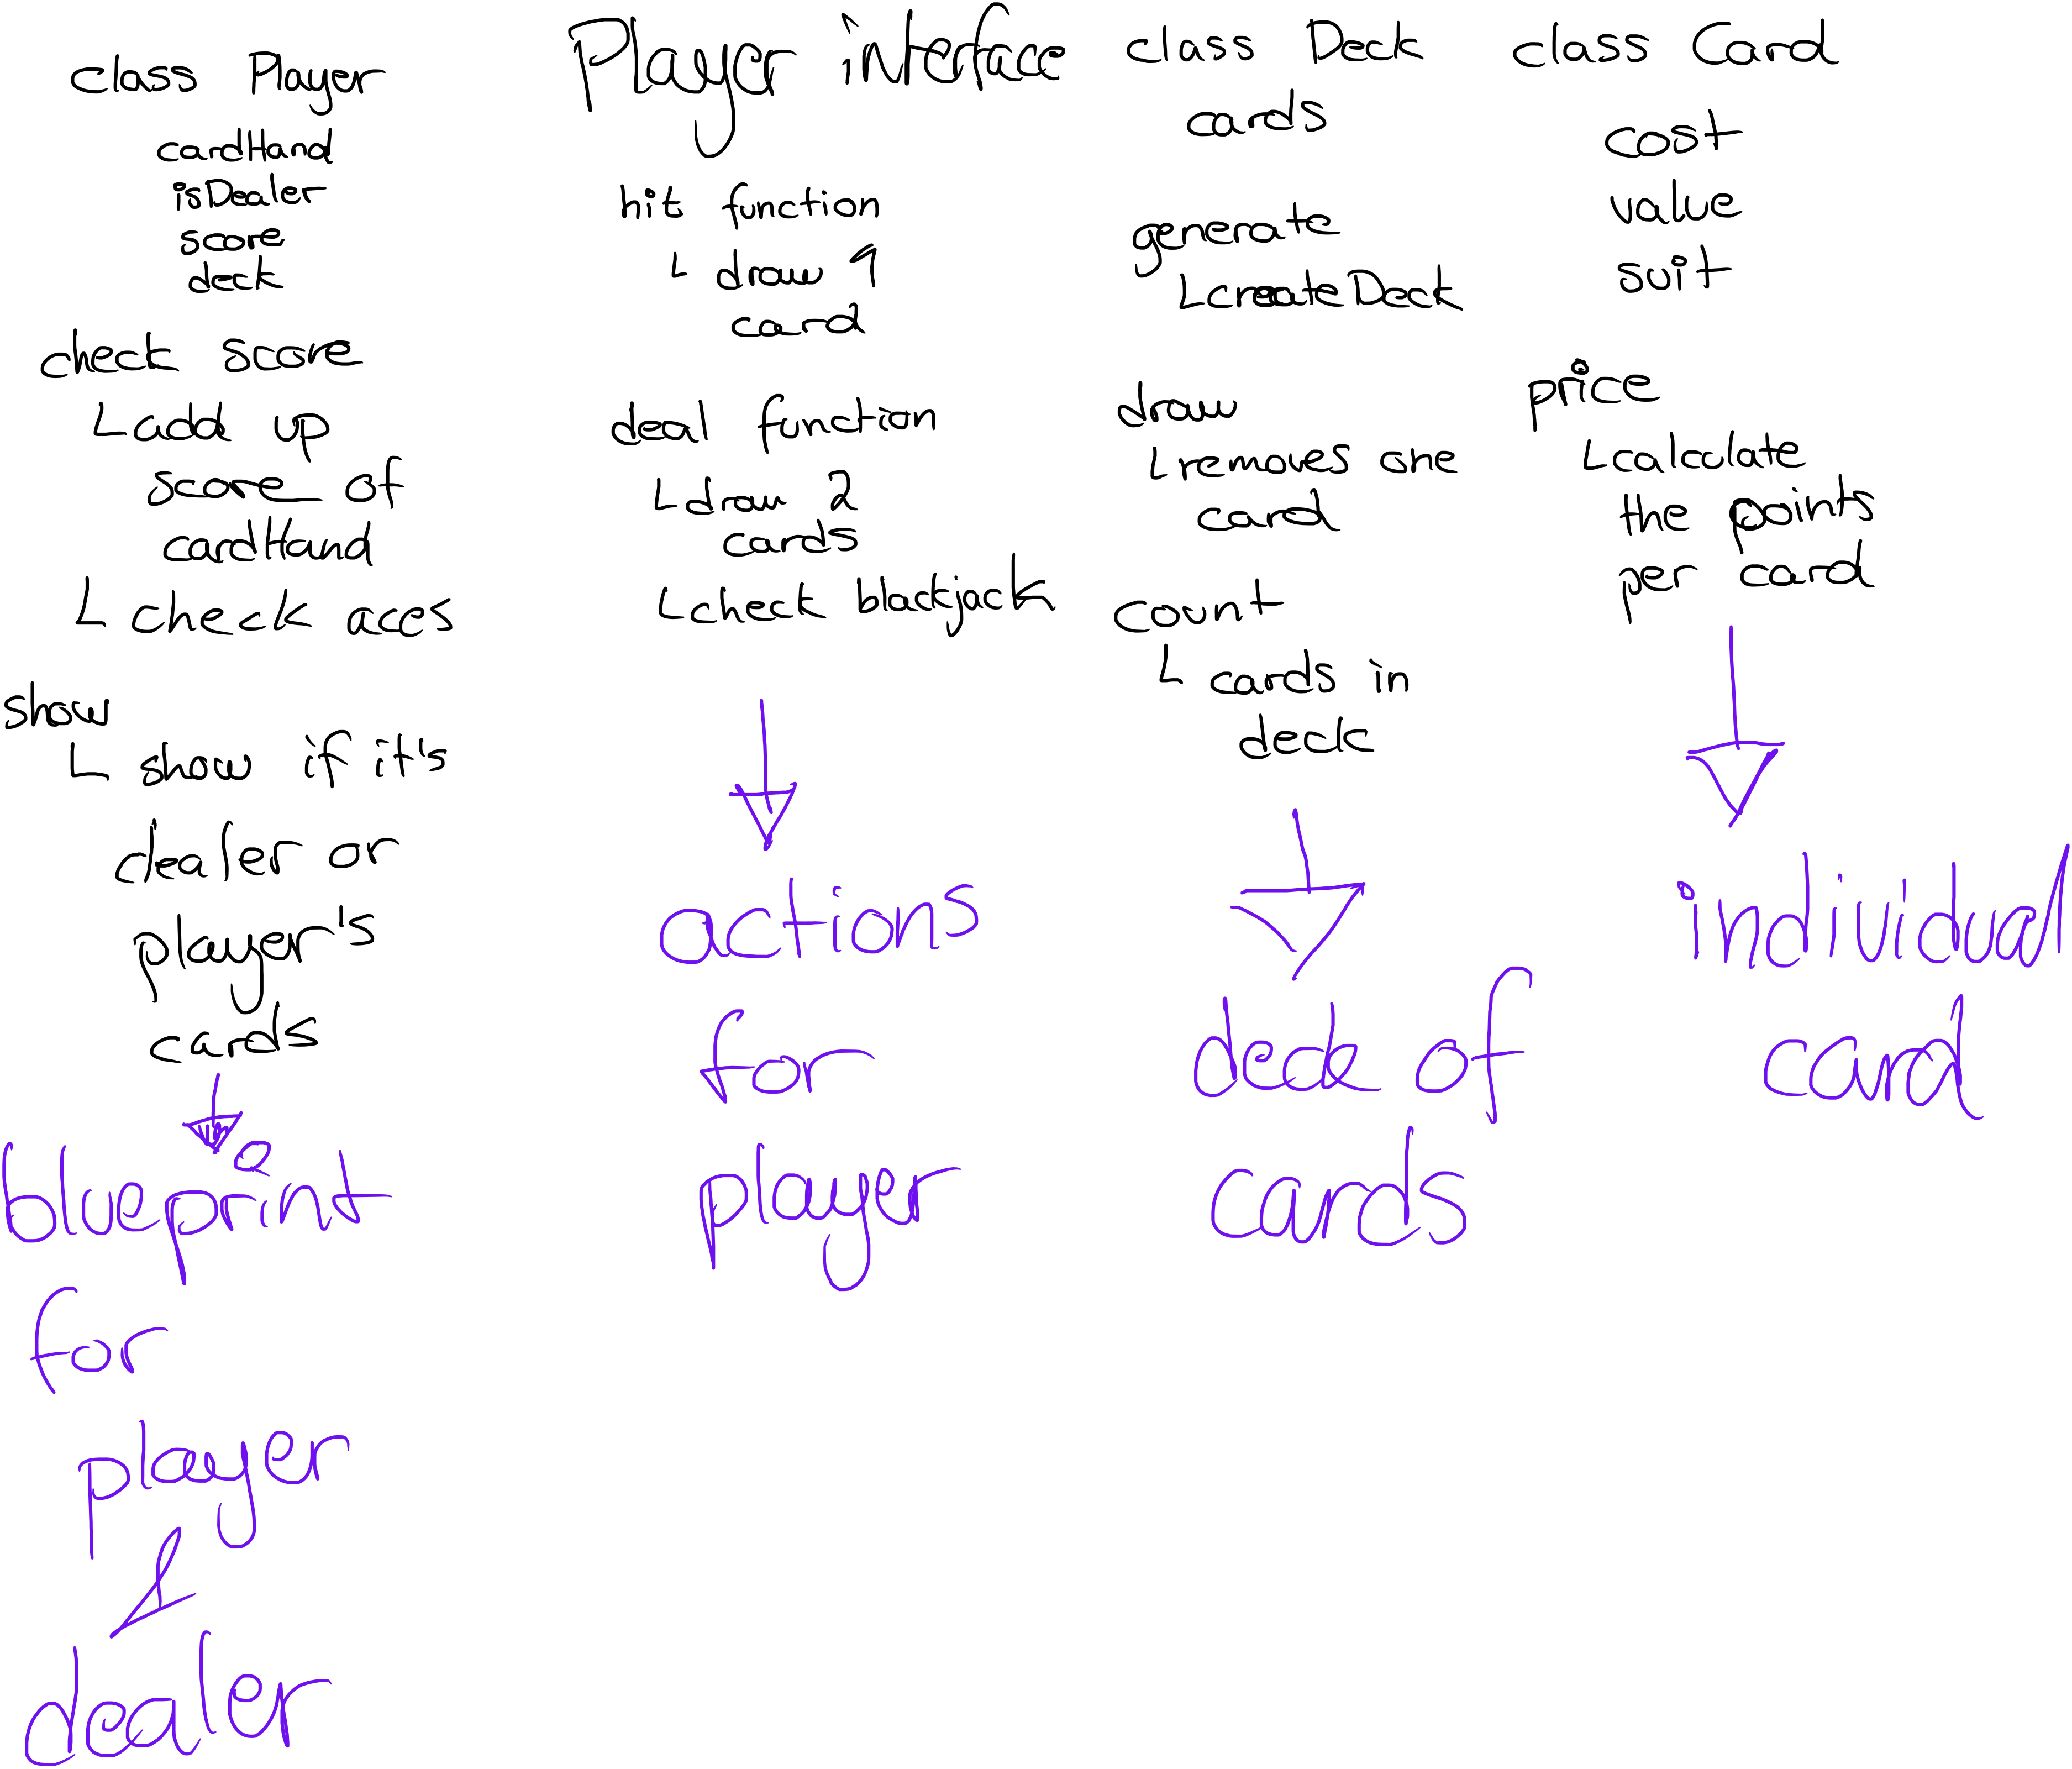 class Player
cardHand
isDealer
score
deck
check score
└ add up
score of
cardHand
└ check aces
show
└ show if it's
dealer or
player's
cards
blueprint
for
player
&
dealer
Player interface
hit function
└ draw 1
card
deal function
└ draw 2
cards
└ check blackjack
actions
for
player
class Deck
cards
generate
└ createDeck
draw
└ removes one
card
count
└ cards in
deck
deck of
cards
class Card
cost
value
suit
price
└ calculate
the points
per card
individual
card